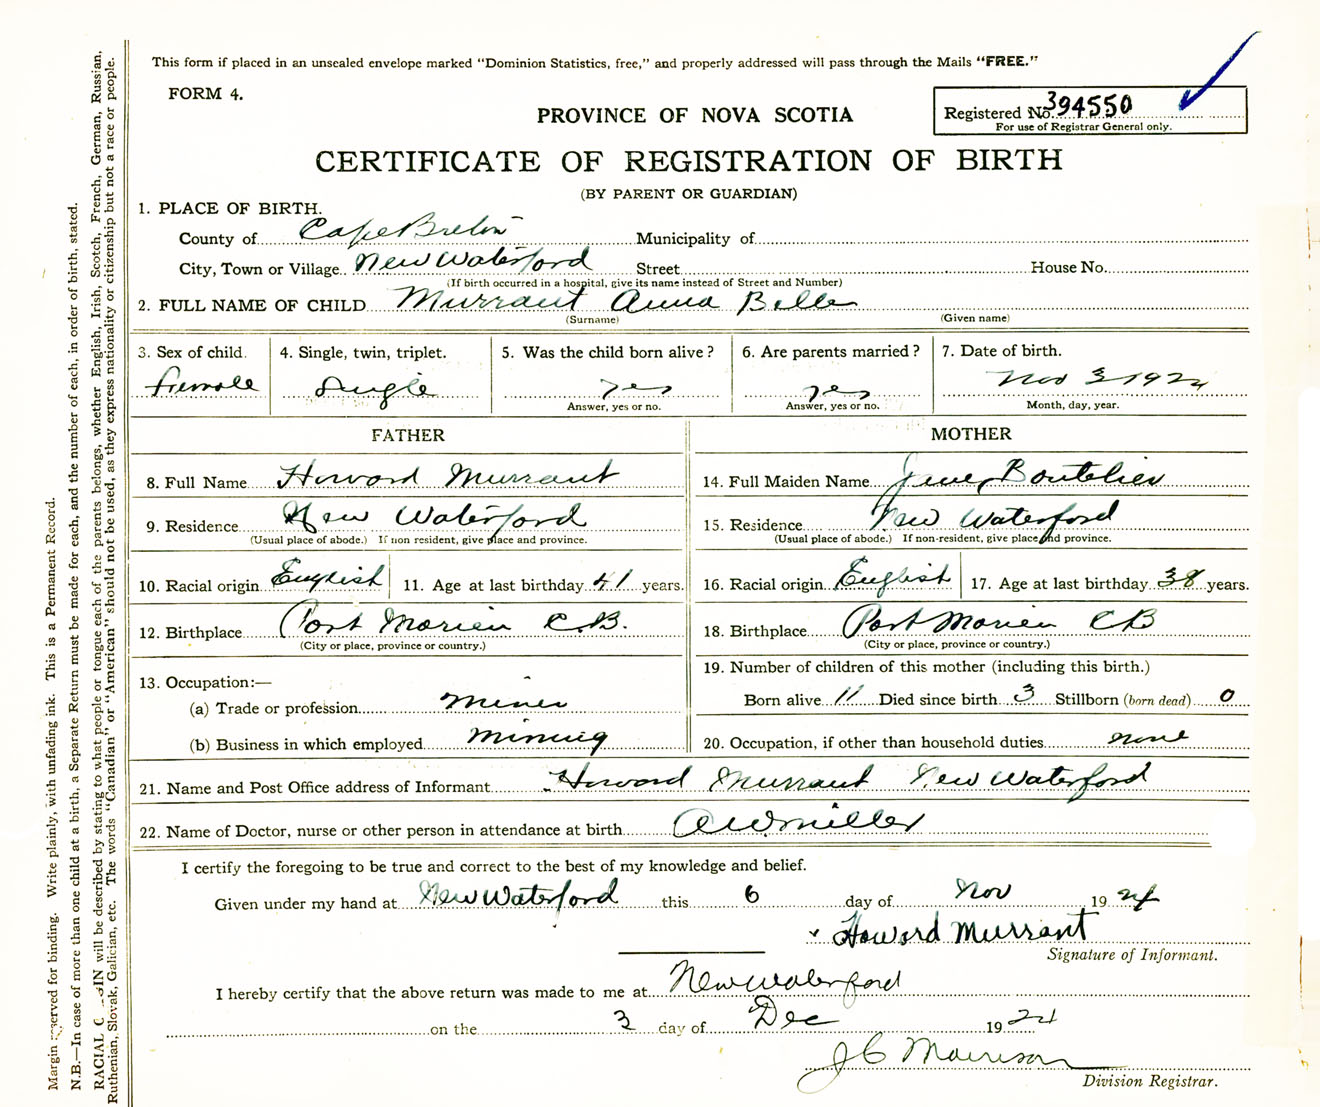 This form if placed in an unsealed envelope marked "Dominion Statistics, free," and properly addressed will pass through the Mails "FREE."
FORM 4.
Registered No. 394550
For use of Registrar General only.
PROVINCE OF NOVA SCOTIA
CERTIFICATE OF REGISTRATION OF BIRTH
(BY PARENT OR GUARDIAN)
1. PLACE OF BIRTH.
County of Cape Breton Municipality of
City, Town or Village New Waterford Street House No.
(If birth occurred in a hospital, give its name instead of Street and Number)
2. FULL NAME OF CHILD Murrant Anna Belle
(Surname) (Given name)
3. Sex of child. 4. Single, twin, triplet. 5. Was the child born alive? 6. Are parents married? 7. Date of birth.
Female Single yes yes Nov 3 1924
Answer, yes or no. Answer, yes or no. Month, day, year.
FATHER MOTHER
8. Full Name Howard Murrant 14. Full Maiden Name Boutelier
9. Residence New Waterford 15. Residence New Waterford
(Usual place of abode.) If non resident, give place and province. (Usual place of abode.) If non-resident, give place and province.
10. Racial origin English 11. Age at last birthday 41 years. 16. Racial origin English 17. Age at last birthday 38 years.
12. Birthplace Port Morien C.B. 18. Birthplace Port Morien CB
(City or place, province or country.) (City or place, province or country.)
13. Occupation:— 19. Number of children of this mother (including this birth.)
(a) Trade or profession miner Born alive 11 Died since birth 3 Stillborn (born dead) 0
(b) Business in which employed mining 20. Occupation, if other than household duties none
21. Name and Post Office address of Informant Howard Murrant New Waterford
22. Name of Doctor, nurse or other person in attendance at birth A W Miller
I certify the foregoing to be true and correct to the best of my knowledge and belief.
Given under my hand at New Waterford this 6 day of Nov 1924
Howard Murrant
Signature of Informant.
I hereby certify that the above return was made to me at New Waterford
on the 3 day of Dec 1924
J C Morrison
Division Registrar.
Margin reserved for binding. Write plainly, with unfading ink. This is a Permanent Record.
N.B.—In case of more than one child at a birth, a Separate Return must be made for each, and the number of each, in order of birth, stated.
RACIAL will be described by stating to what people or tongue each of the parents belongs, whether English, Irish, Scotch, French, German, Russian,
Ruthenian, Slovak, Galician, etc. The words "Canadian" or "American" should not be used, as they express nationality or citizenship but not a race or people.